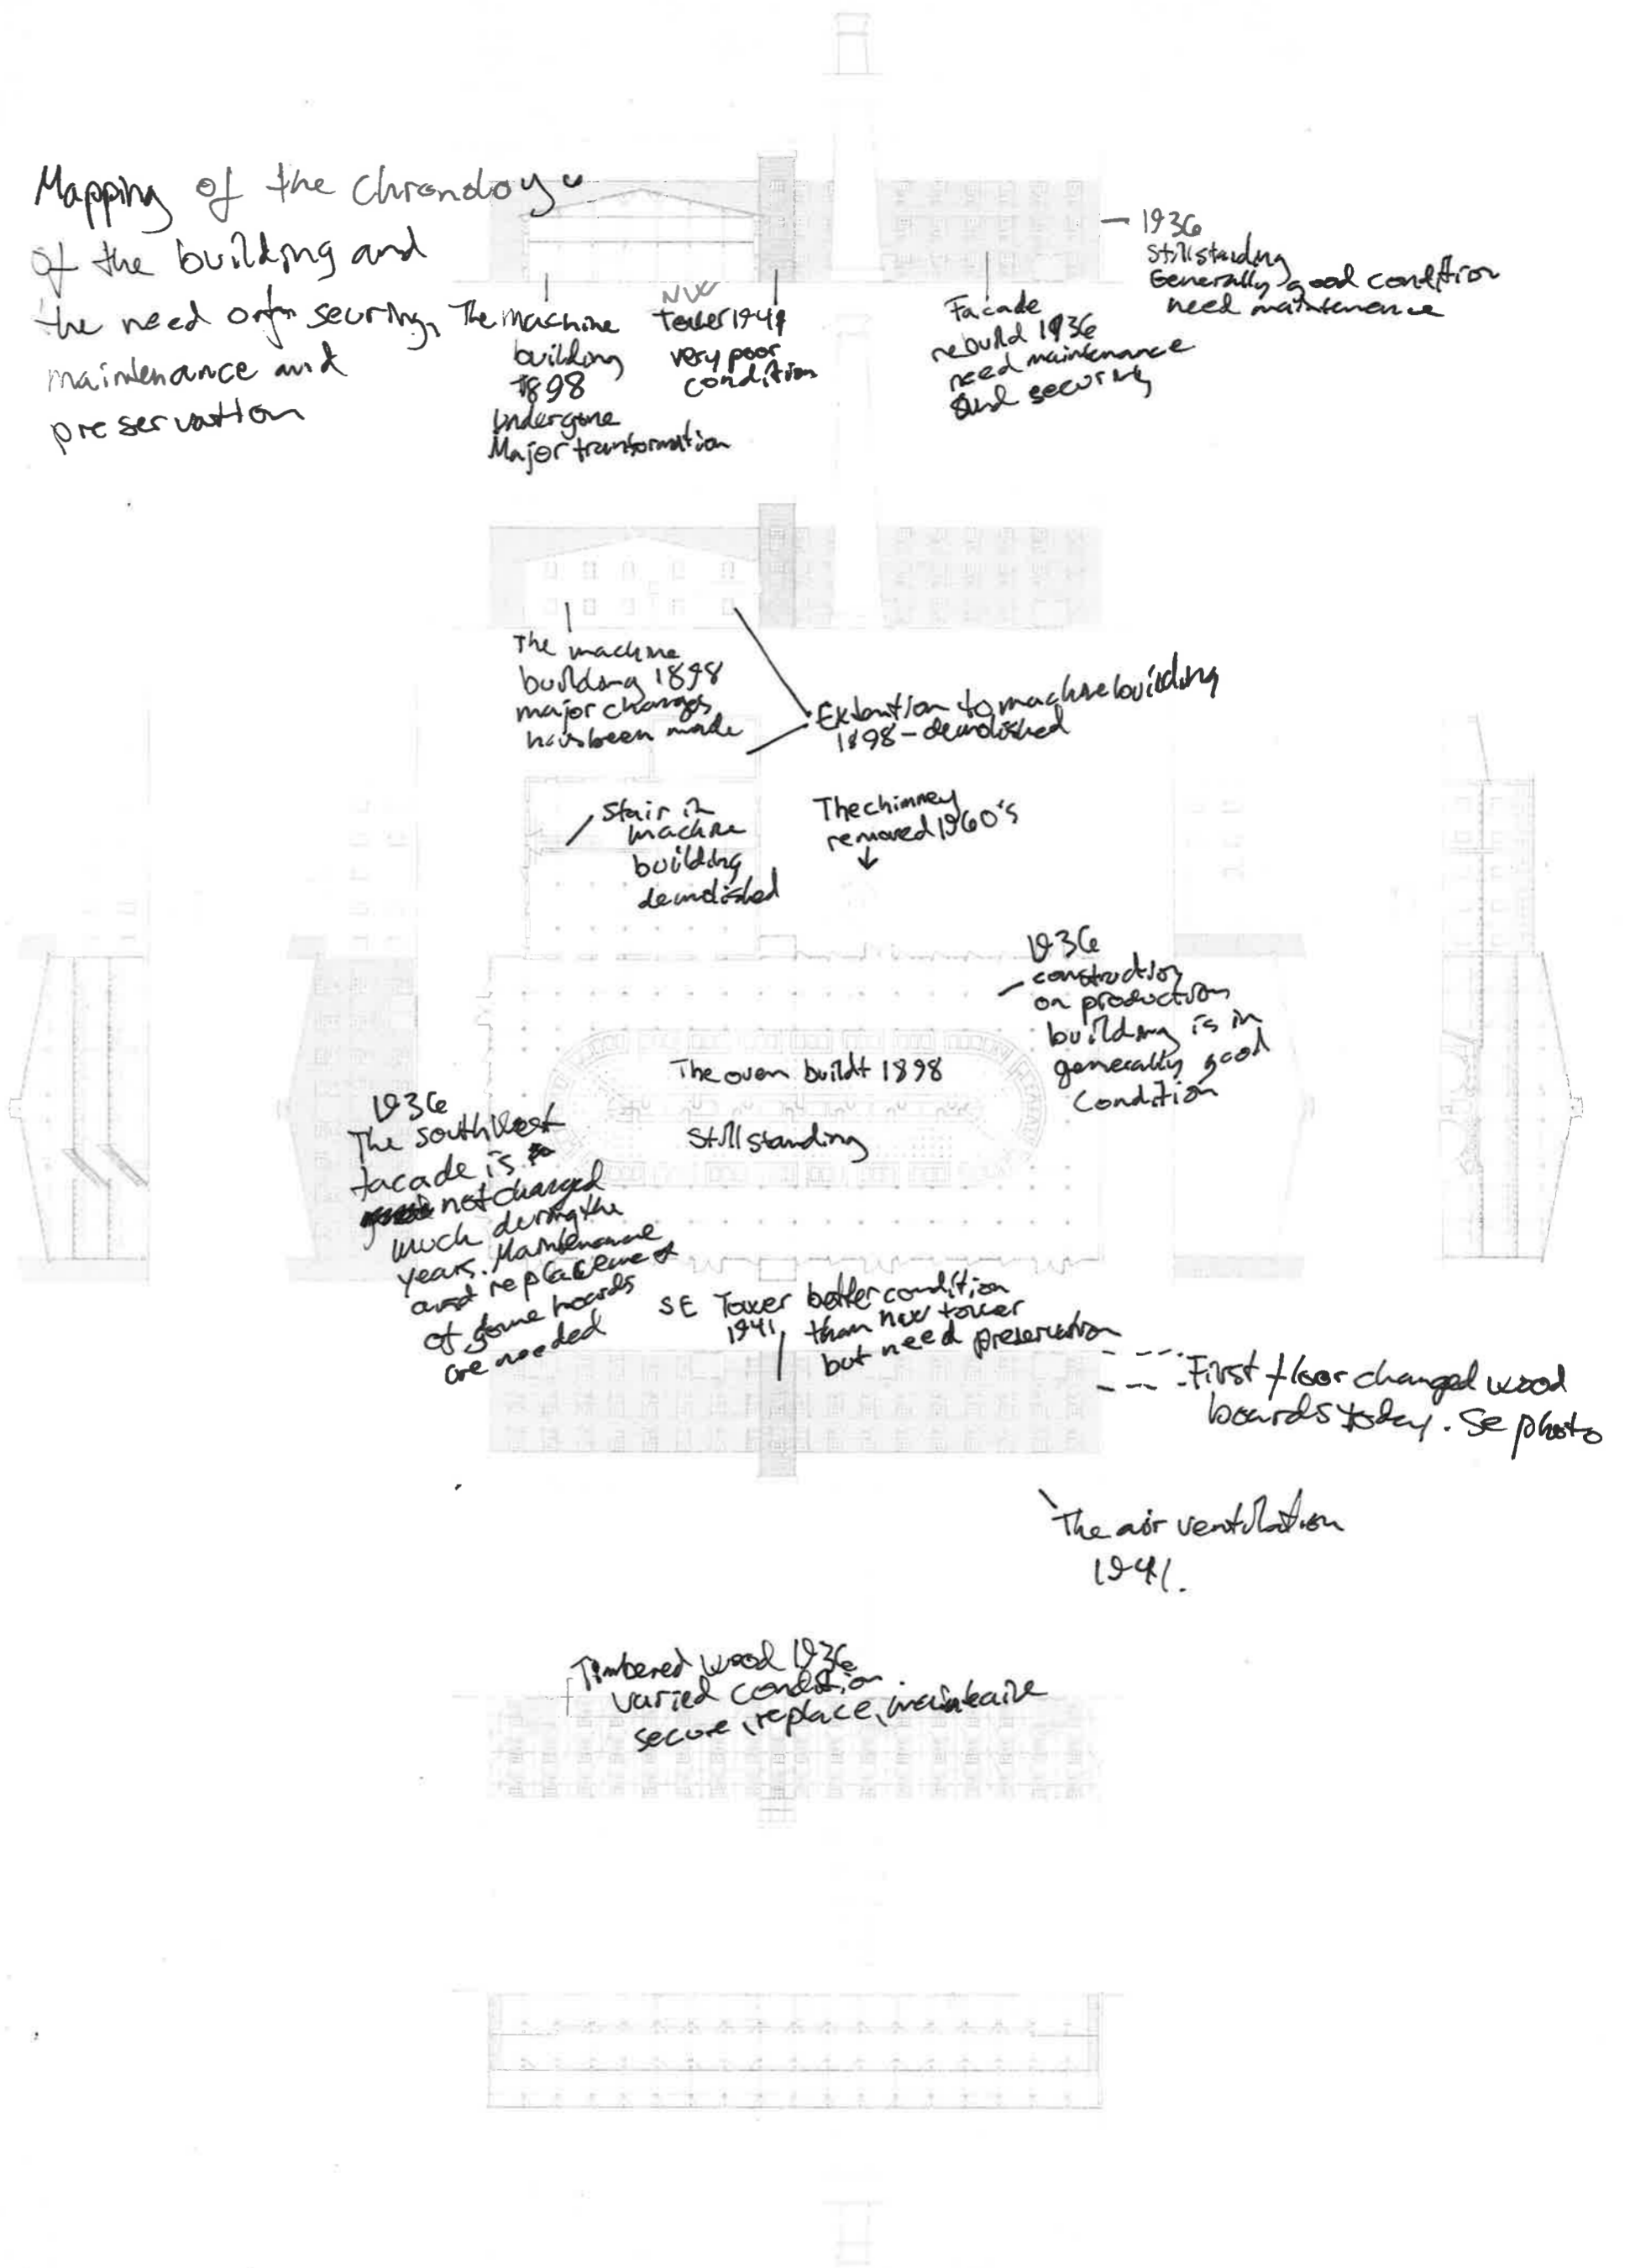 Mapping of the Chronology
of the building and
the need for securing,
maintenance and
preservation
The machine
building
1898
Undergone
Major transformation
NW
Tower 1941
very poor
condition
Facade
rebuild 1936
need maintenance
and securing
1936
Still standing
Generally good condition
need maintenance
The machine
building 1898
major changes
has been made
Extention to machine building
1898 - demolished
Stair in
machine
building
demolished
The chimney
removed 1960's
1936
construction
on production
building is in
generally good
Condition
The oven buildt 1898
Still standing
1936
The South West
facade is
not changed
much during the
years. Maintenance
and replacement
of some boards
are needed
SE Tower better condition
1941, than nw tower
but need preservation
First floor changed wood
boards today. Se photo
The air ventilation
1941.
Timbered wood 1936
varied condition.
secure, replace, maintaine